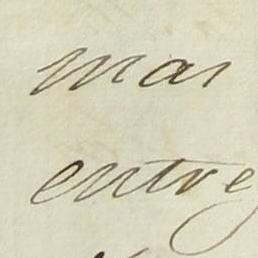 mas
entre